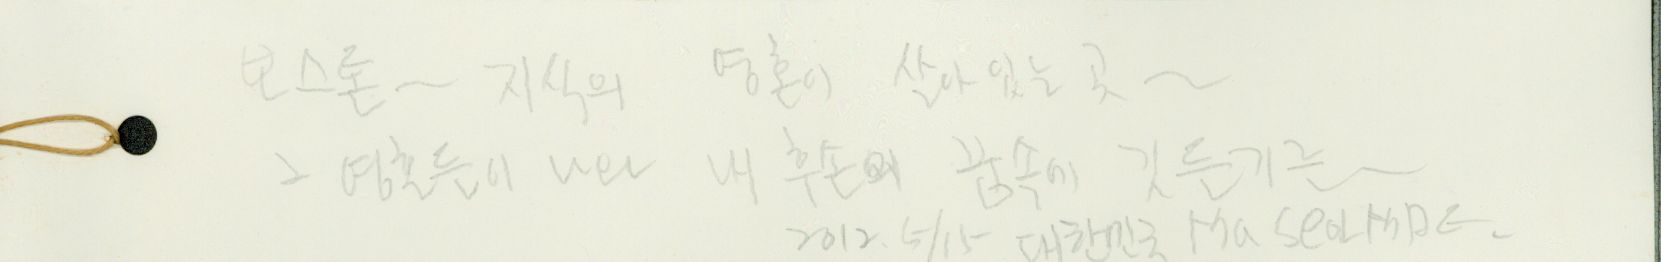 보스톤~ 지식의 영혼이 살아있는 곳~
그 영혼들이 나와 내 후손의 꿈속에 깃든기를~
2012. 5/15 대한민국 Ma